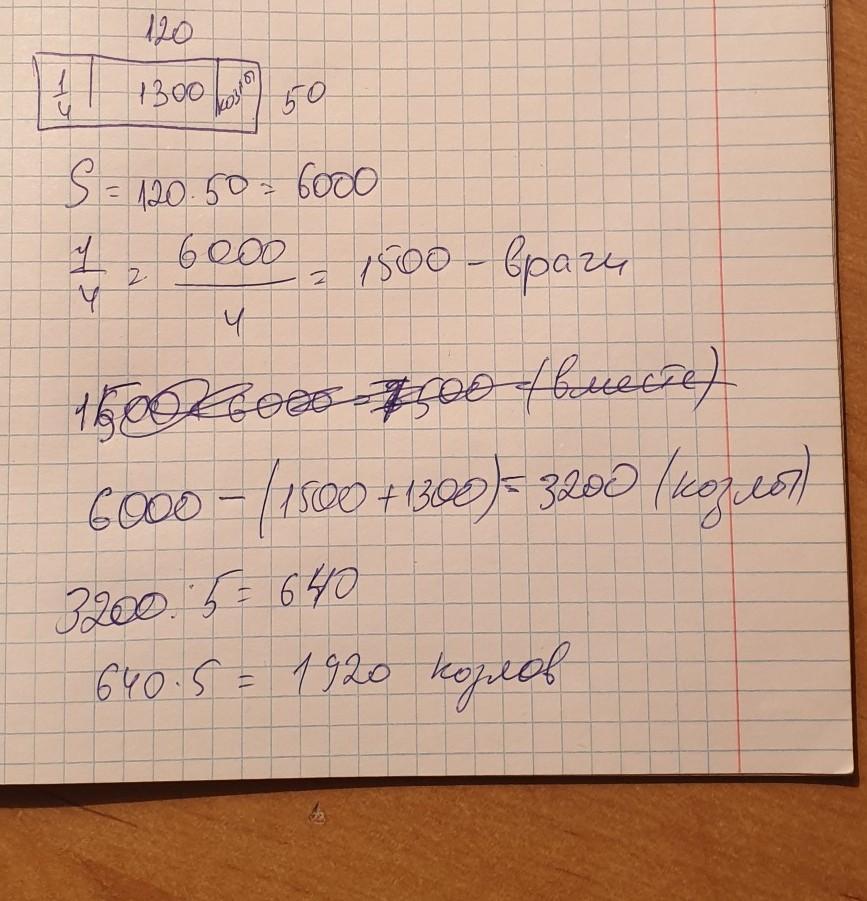 120
1/4 1300 козлы 50
S = 120 · 50 = 6000
1/4 = 6000/4 = 1500 - враги
6000 - (1500 + 1300) = 3200 (козлы)
3200 : 5 = 640
640 · 5 = 1920 козлов